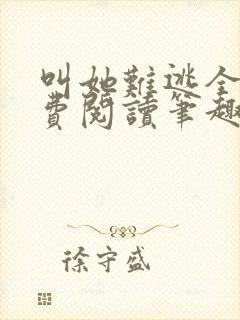 叫她難逃全
費閱讀筆趣
徐守盛